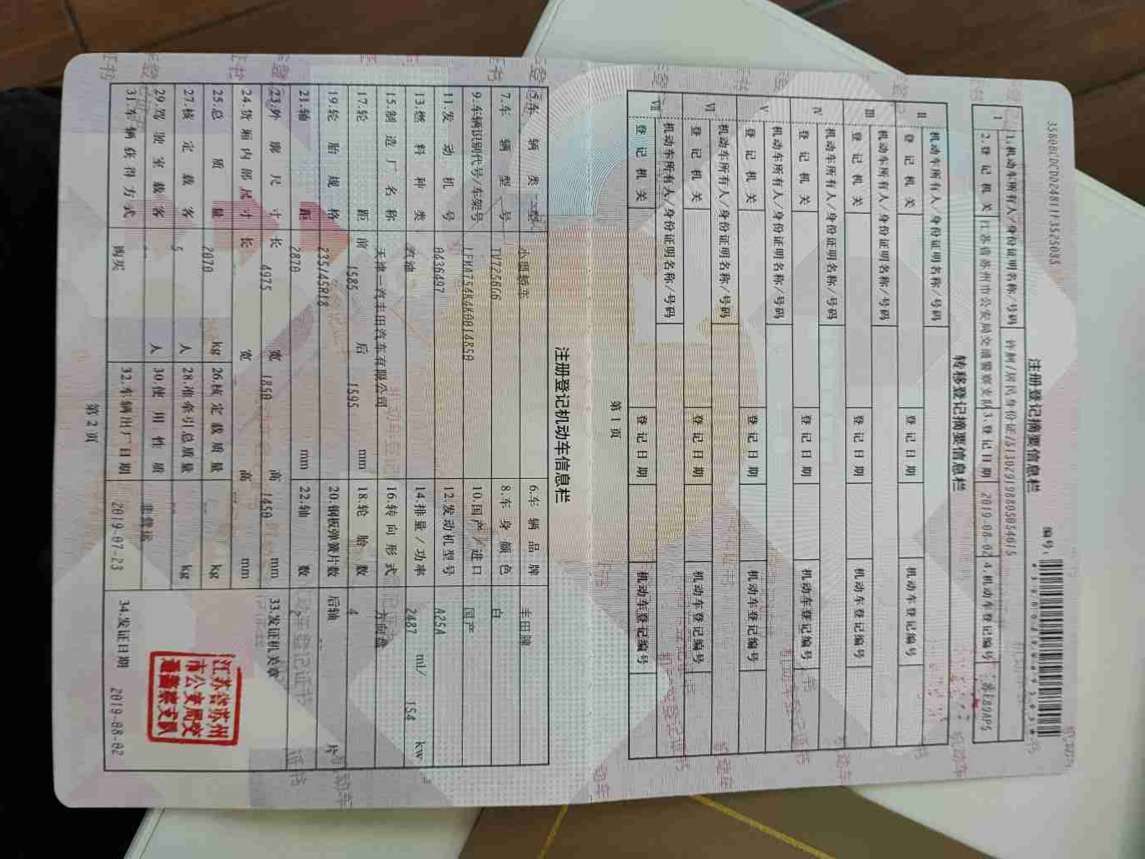 3580BCDCD02481113525083
编号:
注册登记摘要信息栏
Ⅰ 1.机动车所有人/身份证明名称/号码
2.登记机关 江苏省苏州市公安局交通警察支队 3.登记日期 2019-08-02 4.机动车登记编号
转移登记摘要信息栏
Ⅱ 机动车所有人/身份证明名称/号码
登记机关 登记日期 机动车登记编号
Ⅲ 机动车所有人/身份证明名称/号码
登记机关 登记日期 机动车登记编号
Ⅳ 机动车所有人/身份证明名称/号码
登记机关 登记日期 机动车登记编号
Ⅴ 机动车所有人/身份证明名称/号码
登记机关 登记日期 机动车登记编号
Ⅵ 机动车所有人/身份证明名称/号码
登记机关 登记日期 机动车登记编号
Ⅶ 机动车所有人/身份证明名称/号码
登记机关 登记日期 机动车登记编号
第1页
注册登记机动车信息栏
5.车辆类型 小型轿车 6.车辆品牌 丰田牌
7.车辆型号 8.车身颜色 白
9.车辆识别代号/车架号 10.国产/进口 国产
11.发动机号 0436497 12.发动机型号 A25A
13.燃料种类 汽油 14.排量/功率 2487 ml/ 154 kw
15.制造厂名称 天津一汽丰田汽车有限公司 16.转向形式 方向盘
17.轮距 前 1585 后 1595 mm 18.轮胎数 4
19.轮胎规格 235/45R18 20.钢板弹簧片数 后轴 片
21.轴距 2870 mm 22.轴数 2
23.外廓尺寸 长 4975 宽 1850 高 1450 mm
24.货厢内部尺寸 长 宽 高 mm
25.总质量 2070 kg 26.核定载质量 kg
27.核定载客 5 人 28.准牵引总质量 kg
29.驾驶室载客 人 30.使用性质 非营运
31.车辆获得方式 购买 32.车辆出厂日期 2019-07-23
33.发证机关章
江苏省苏州
市公安局交
通警察支队
34.发证日期 2019-08-02
第2页